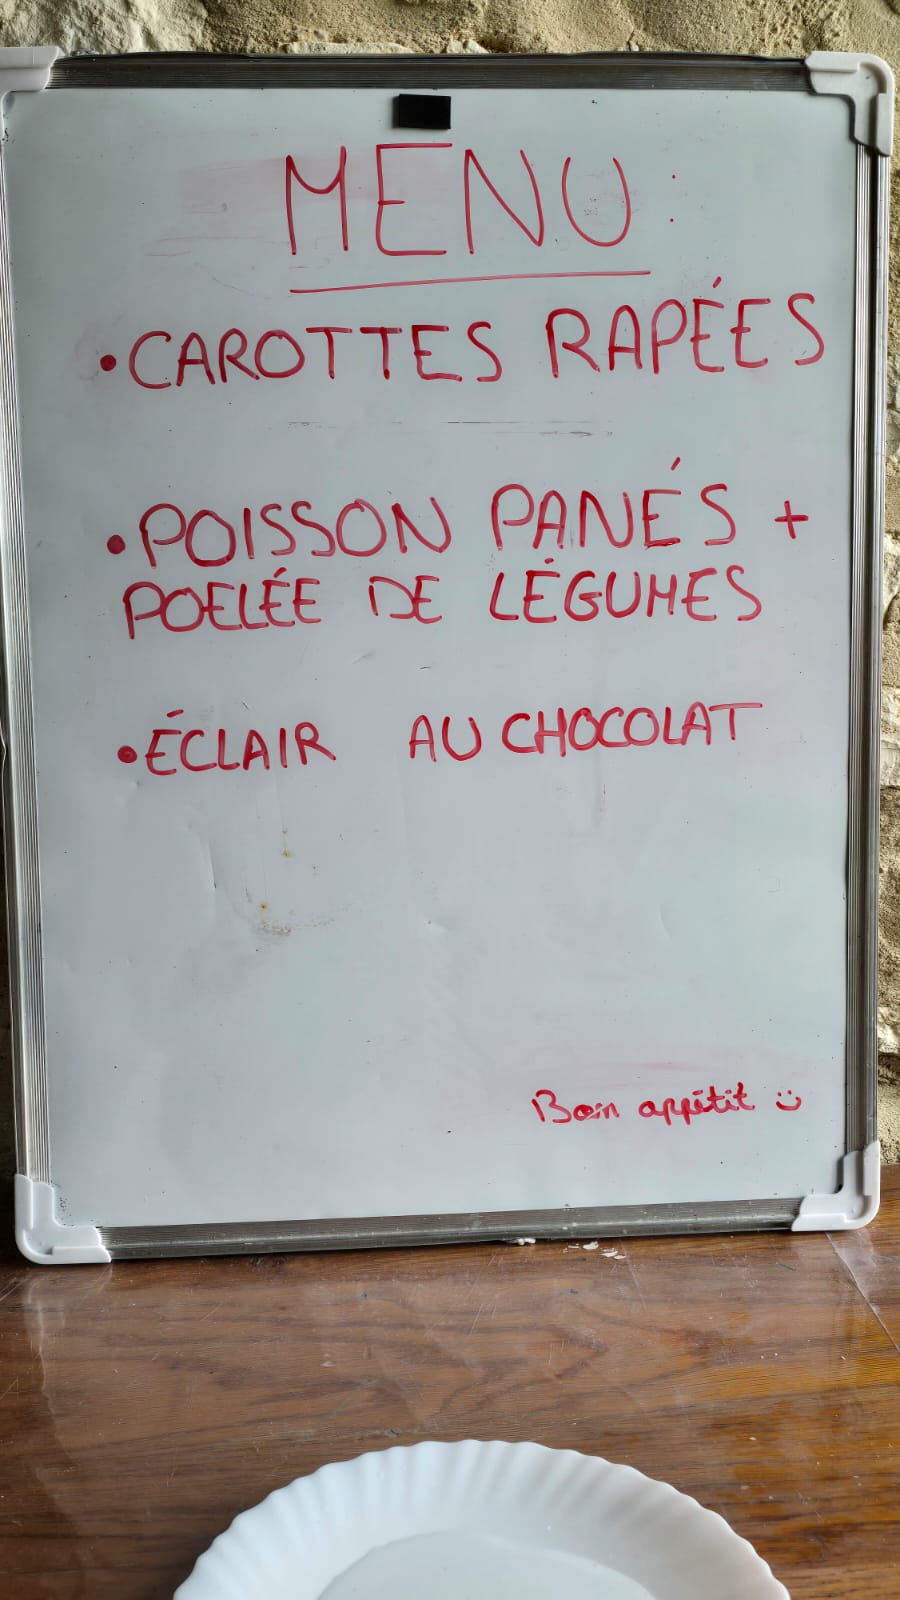 MENU :
• CAROTTES RAPÉES
• POISSON PANÉS +
POELÉE DE LÉGUMES
• ÉCLAIR AU CHOCOLAT
Bon appétit ☺